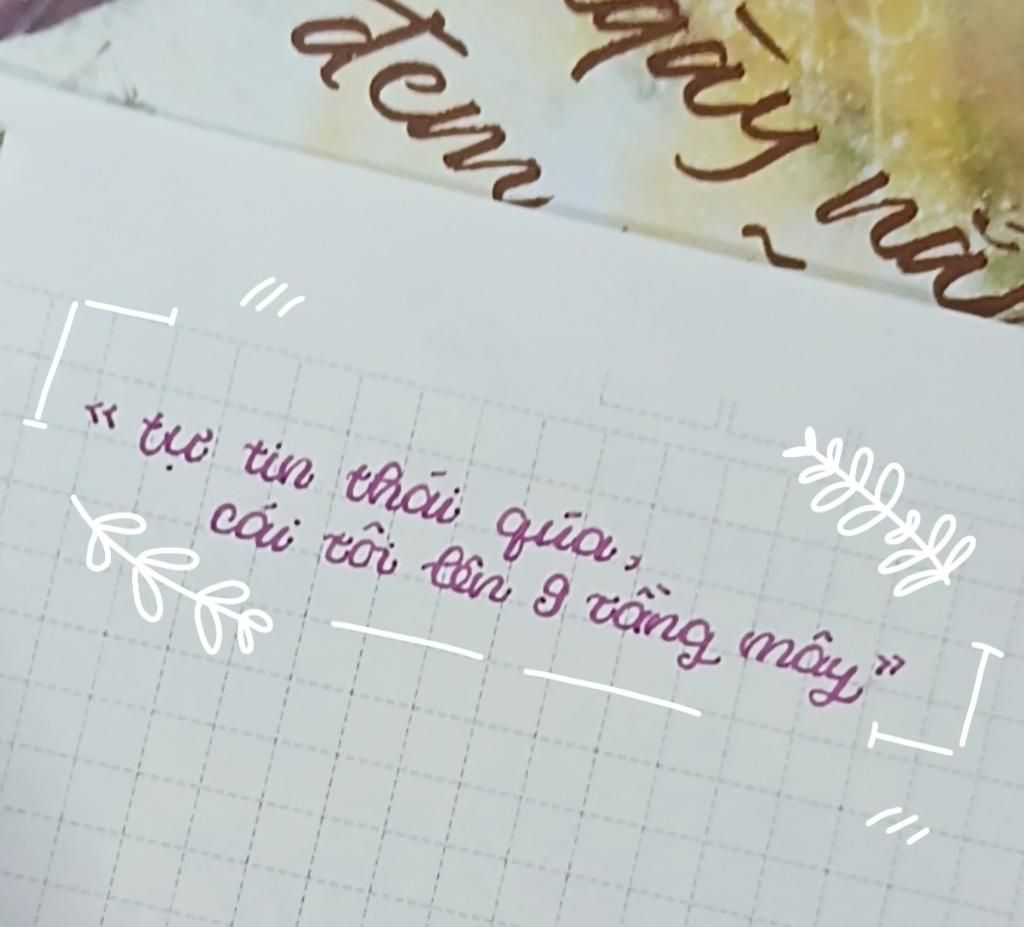 đêm
ngày nă
« tự tin thái qúa,
cái tôi lên 9 tầng mây »